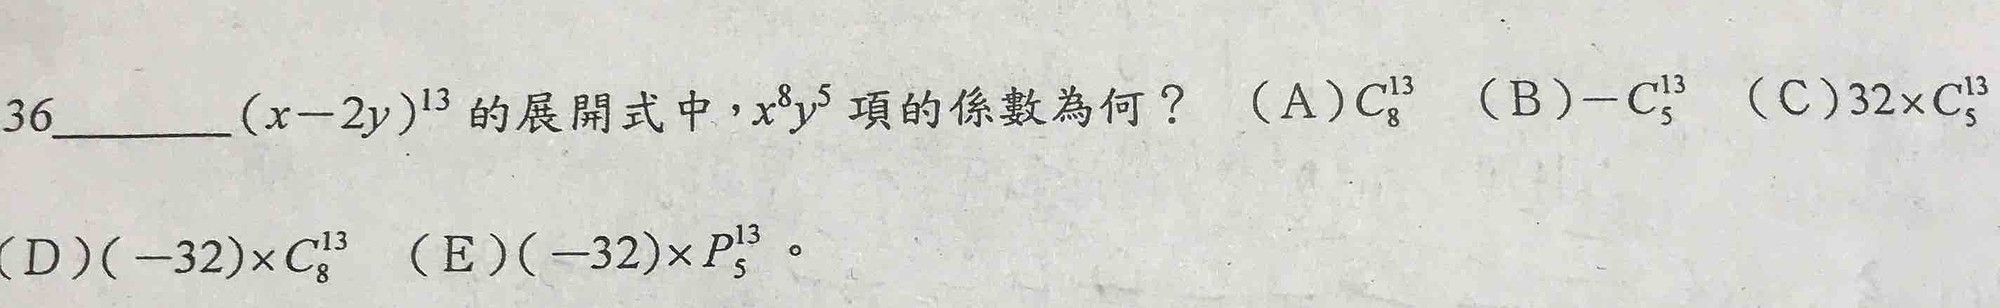 36______(x－2y)¹³ 的展開式中，x⁸y⁵ 項的係數為何？ （A）C₈¹³ （B）－C₅¹³ （C）32×C₅¹³
（D）(－32)×C₈¹³ （E）(－32)×P₅¹³。